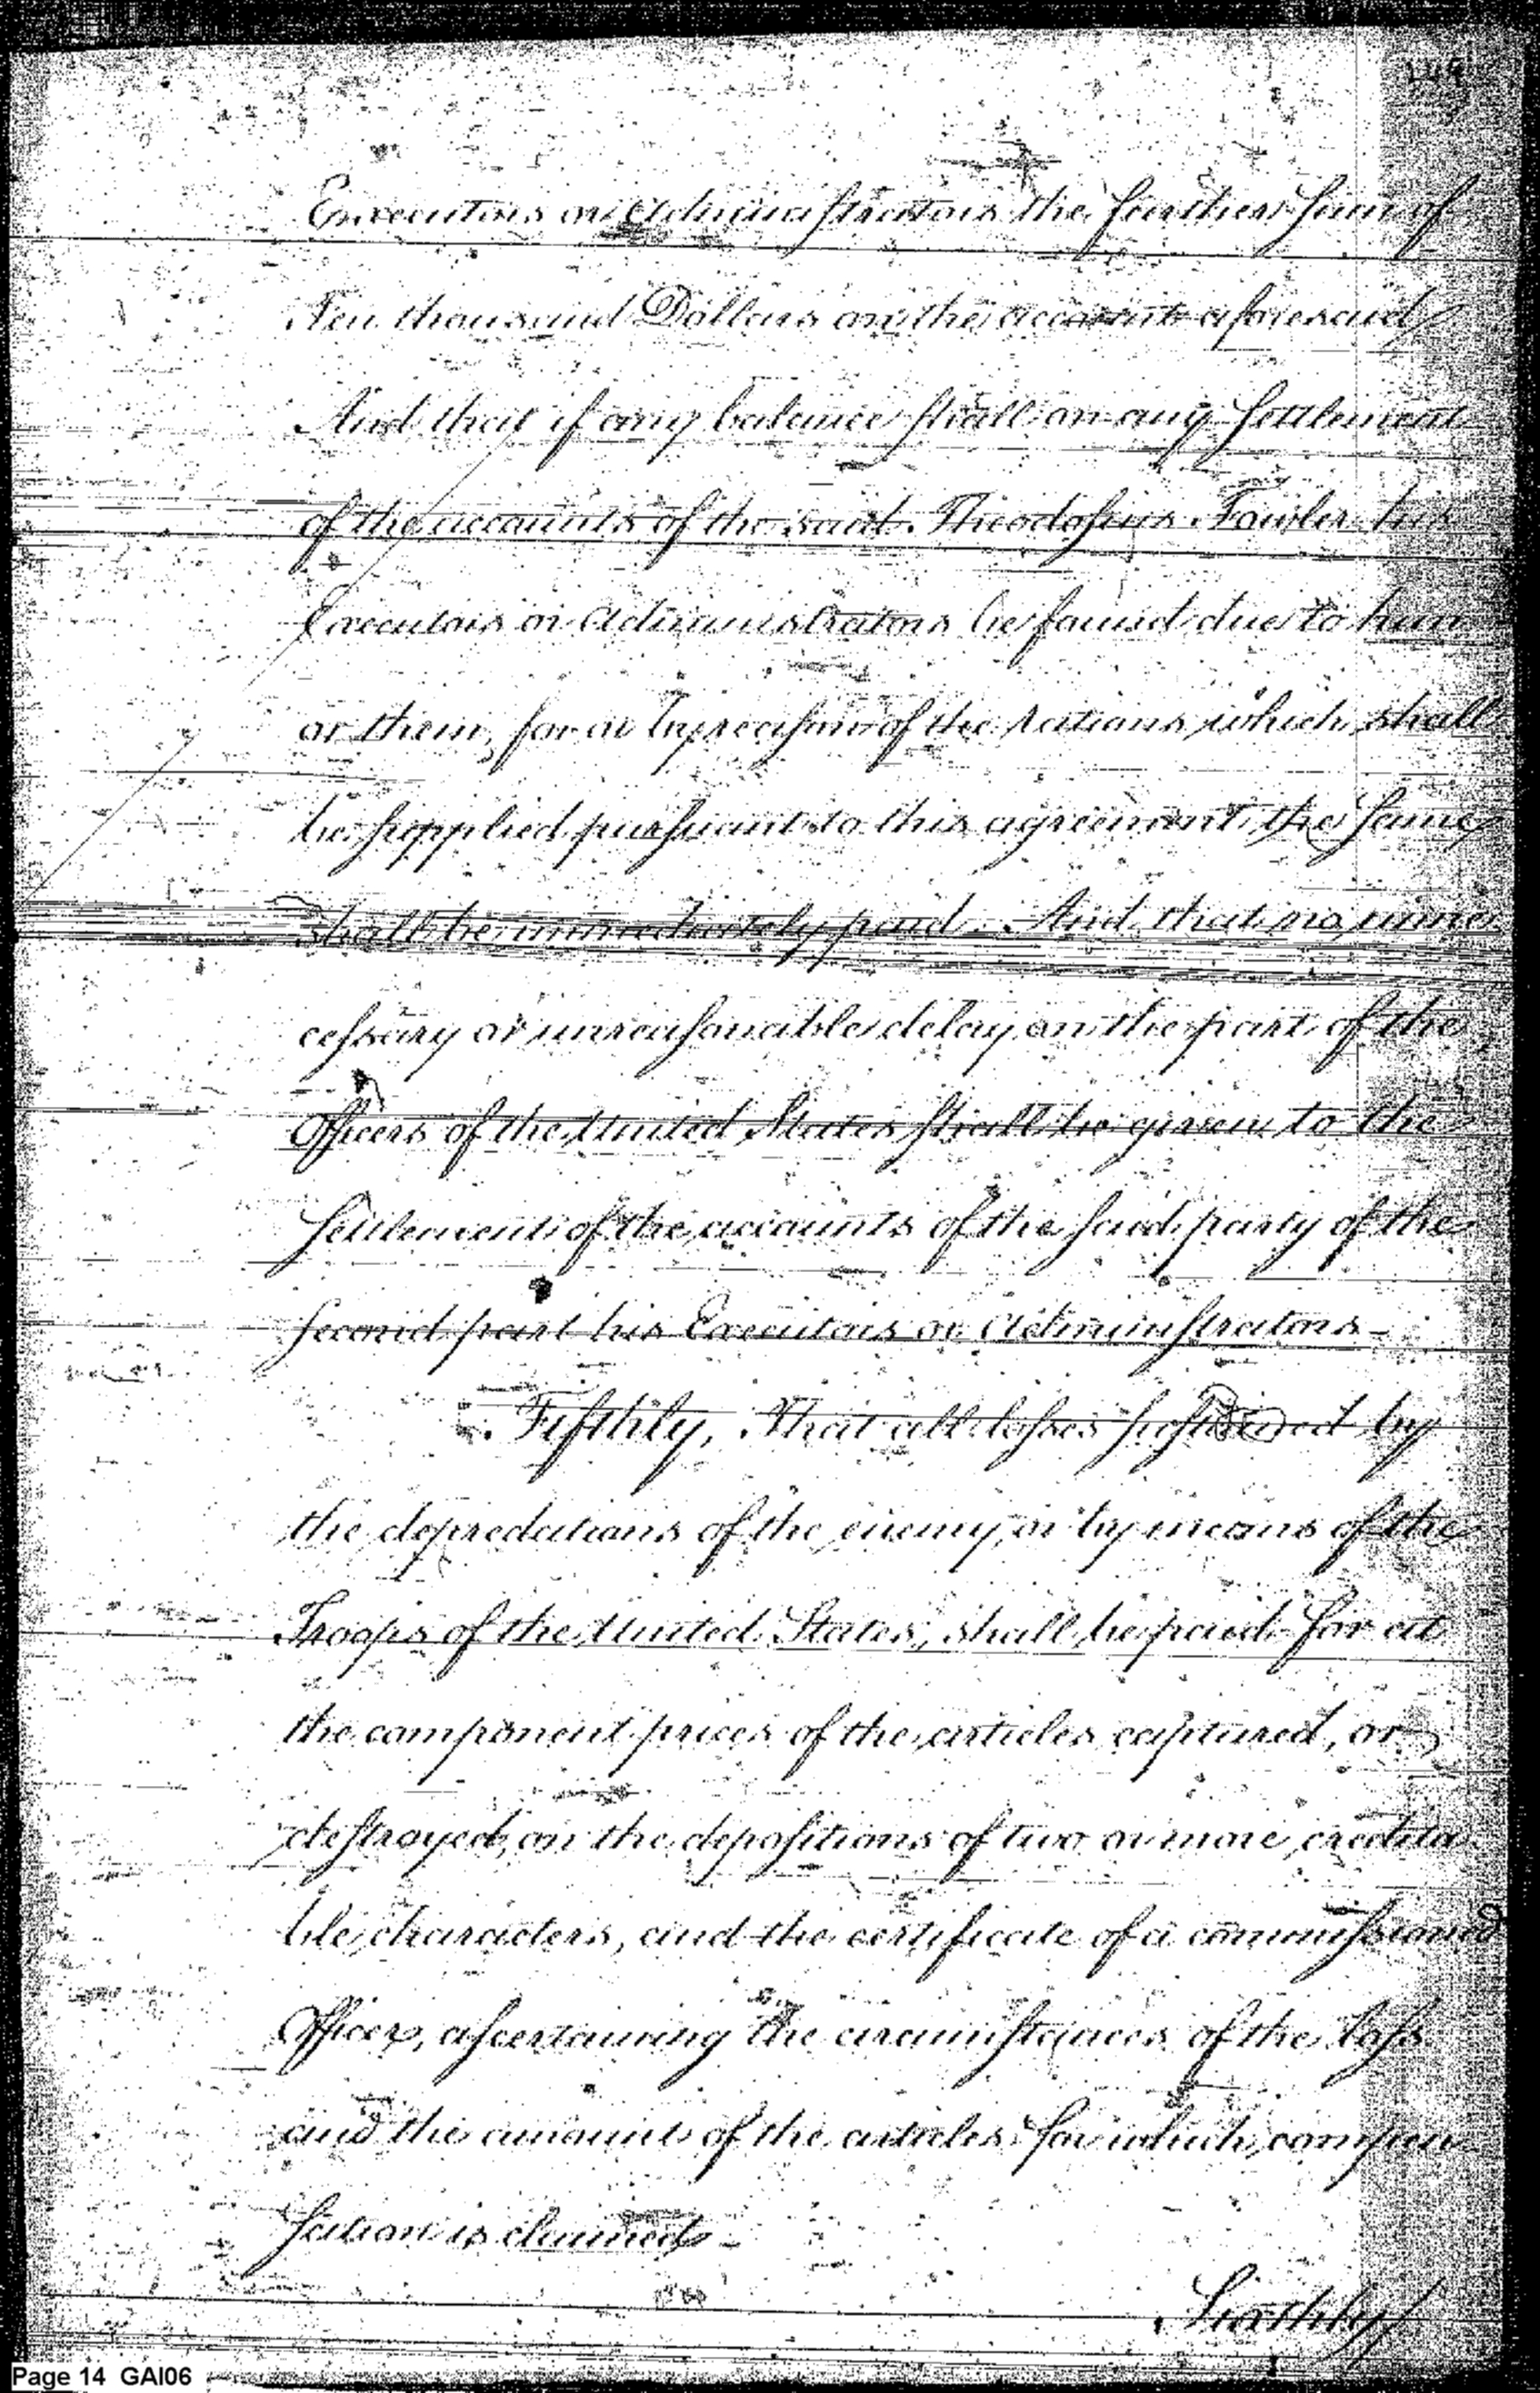 Executors or Administrators the further sum of
Ten thousand Dollars on the account aforesaid
And that if any balance shall on any settlement
of the accounts of the said Theodosius Fowler his
Executors or Administrators be found due to him
or them, for or by reason of the rations which shall
be supplied pursuant to this agreement the same
shall be immediately paid. And that no unne
cessary or unreasonable delay on the part of the
Officers of the United States shall be given to the
settlement of the accounts of the said party of the
second part his Executors or Administrators –
Fifthly, That all losses sustained by
the depredations of the enemy, or by means of the
Troops of the United States, shall be paid for at
the component prices of the articles captured, or
destroyed, on the depositions of two or more credita
ble characters, and the certificate of a commissioned
Officer, ascertaining the circumstances of the loss
and the amount of the articles for which compen
sation is claimed –
Sixthly
Page 14 GAI06